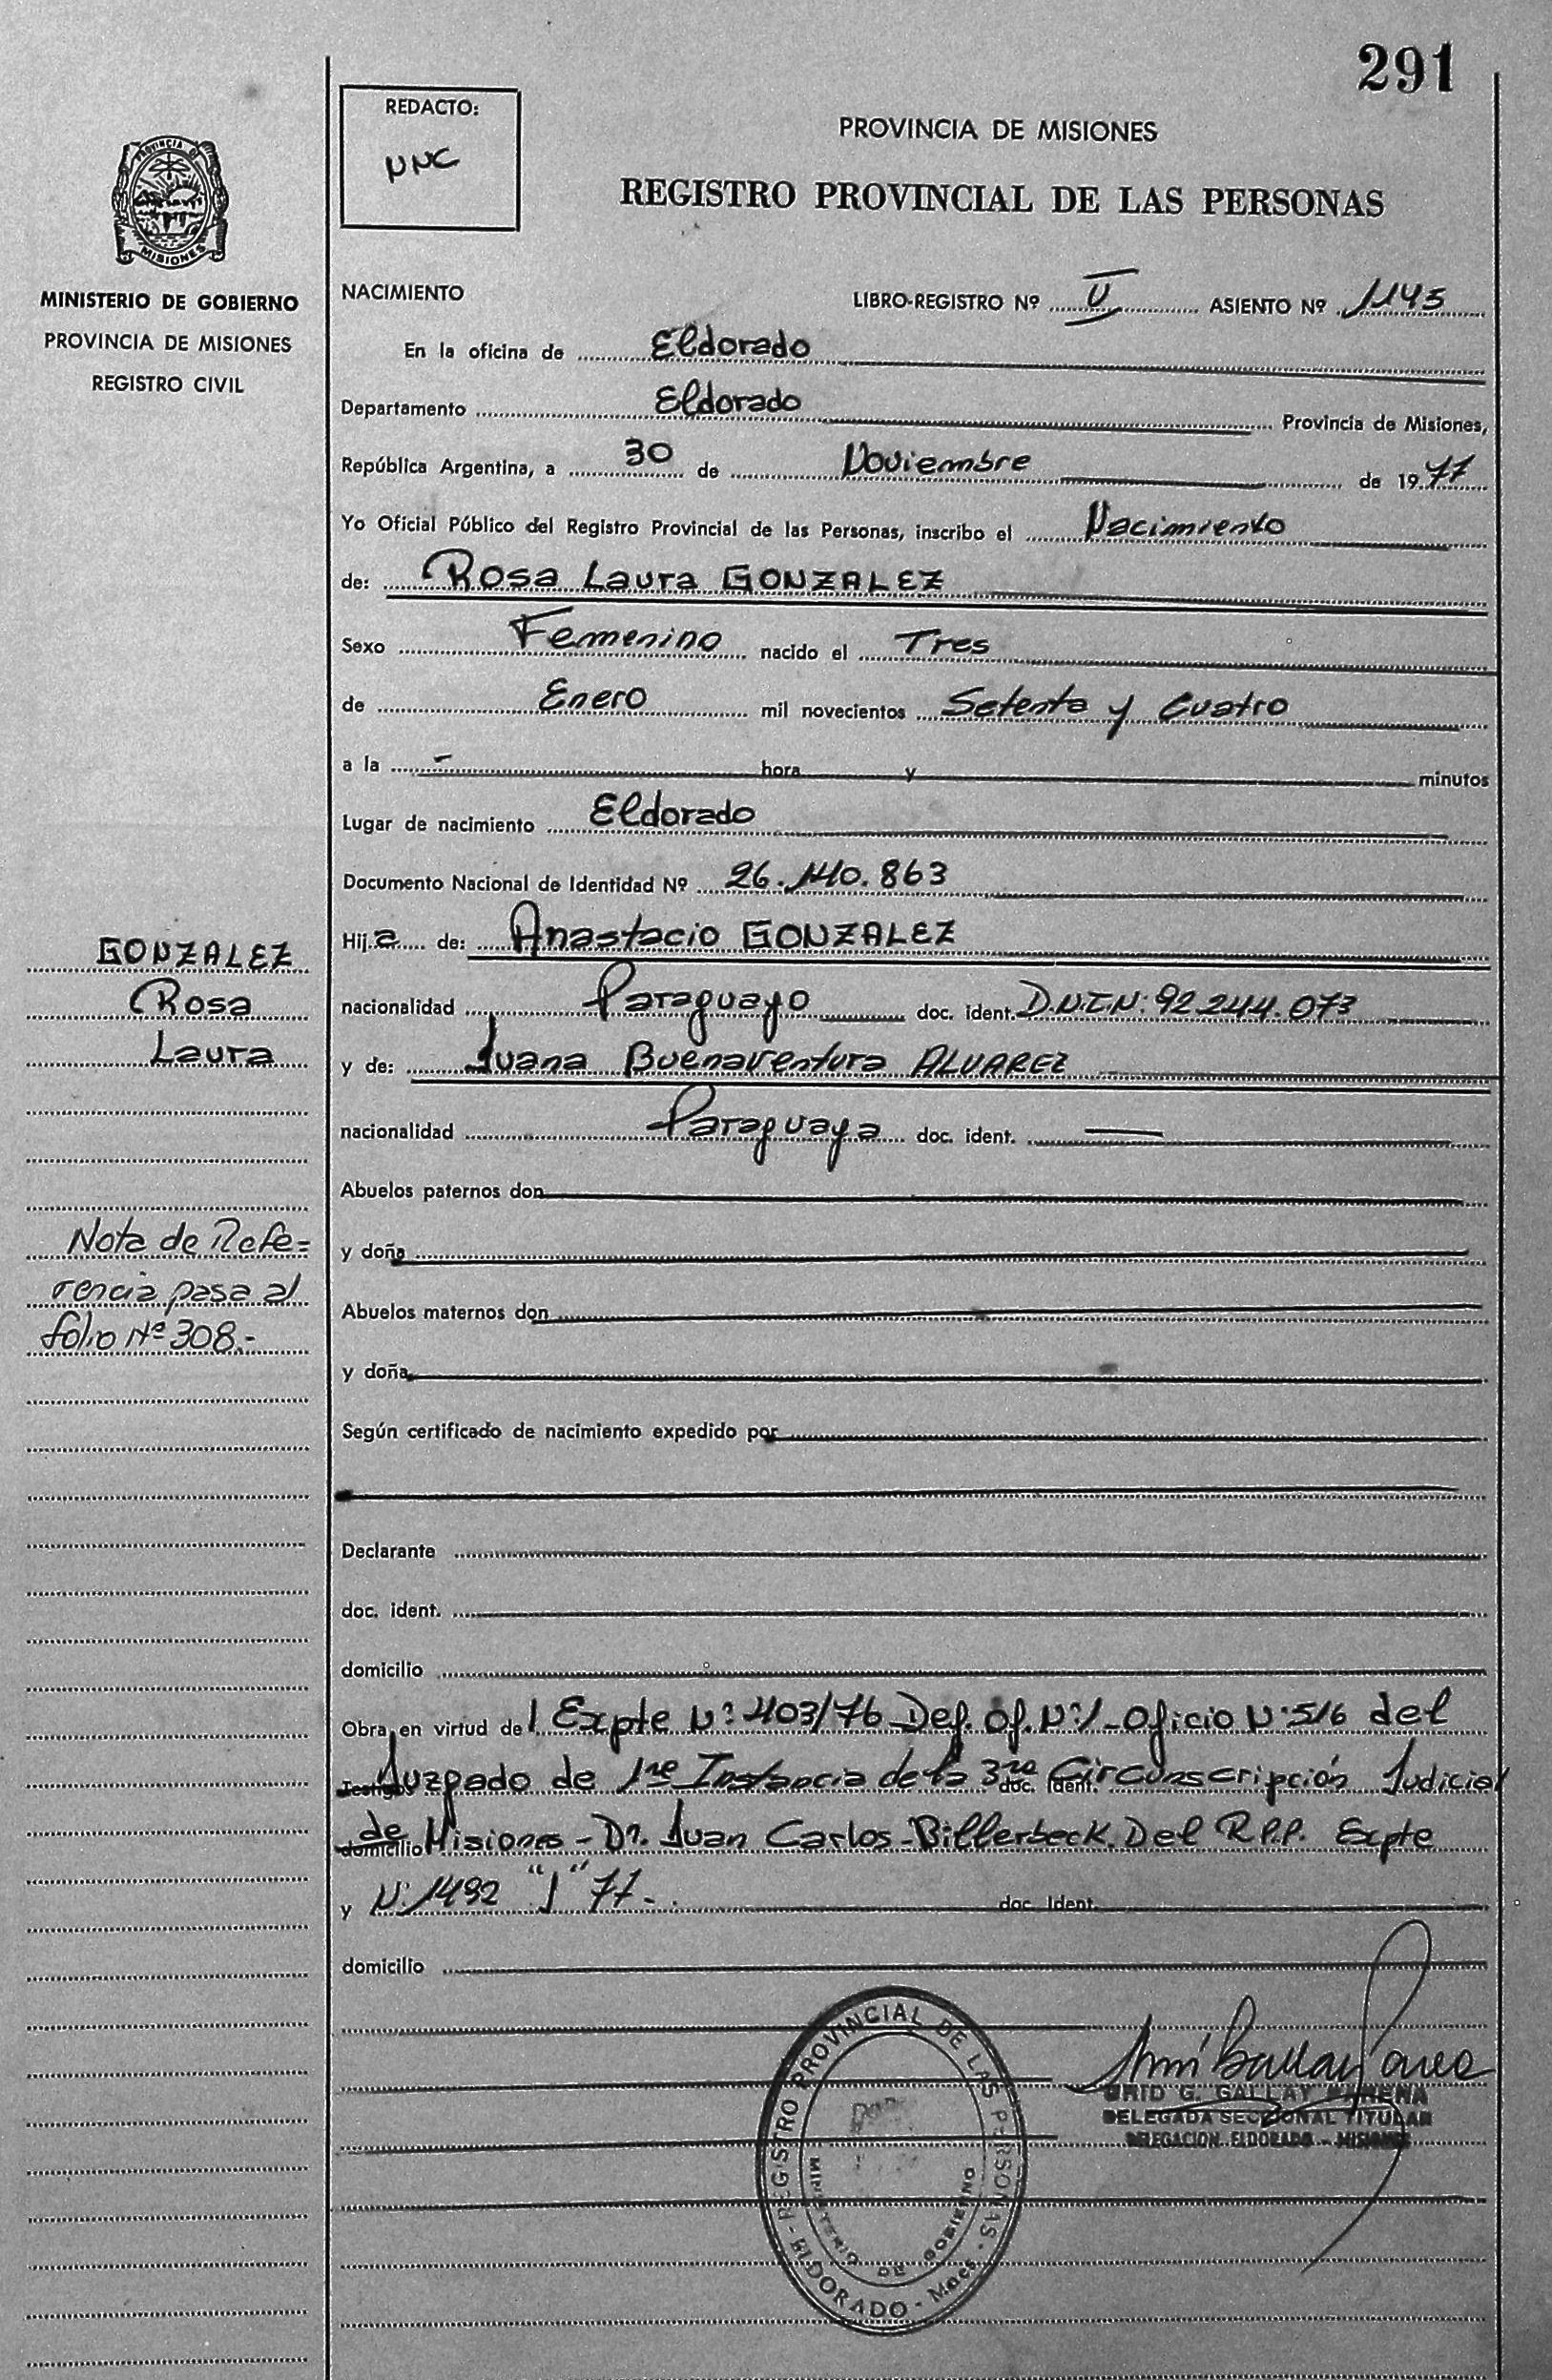 291
REDACTO:
NNC
PROVINCIA DE MISIONES
REGISTRO PROVINCIAL DE LAS PERSONAS
PROVINCIA DE
MISIONES
MINISTERIO DE GOBIERNO
PROVINCIA DE MISIONES
REGISTRO CIVIL
NACIMIENTO LIBRO-REGISTRO Nº II ASIENTO Nº 1145
En la oficina de Eldorado
Departamento Eldorado Provincia de Misiones,
República Argentina, a 30 de Noviembre de 1977
Yo Oficial Público del Registro Provincial de las Personas, inscribo el Nacimiento
de: Rosa Laura GONZALEZ
Sexo Femenino nacido el Tres
de Enero mil novecientos Setenta y Cuatro
a la - hora y minutos
Lugar de nacimiento Eldorado
Documento Nacional de Identidad Nº 26.140.863
Hija de: Anastacio GONZALEZ
nacionalidad Paraguayo doc. ident. D.N.I N: 92.244.073
y de: Juana Buenaventura ALVAREZ
nacionalidad Paraguaya doc. ident. —
GONZALEZ
Rosa
Laura
Abuelos paternos don
y doña
Abuelos maternos don
y doña
Nota de Refe=
rencia pasa al
folio Nº 308.-
Según certificado de nacimiento expedido por
Declarante
doc. ident.
domicilio
Obra en virtud del Expte Nº 403/76 Def. Of. Nº 1 - Oficio Nº 516 del
Testigos Juzgado de 1ra Instancia de la 3ra doc. ident. Circunscripción Judicial
domicilio de Misiones - Dr. Juan Carlos - Billerbeck. Del R.P.P. Expte
y Nº 1492 "J" 77-. doc. Ident.
domicilio
REGISTRO PROVINCIAL DE LAS PERSONAS - ELDORADO - Mnes -
MINISTERIO DE GOBIERNO
G. GALLAY
DELEGADA SECCIONAL TITULAR
DELEGACION ELDORADO - MISIONES